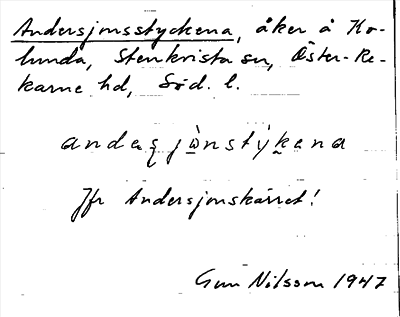 Andersjonsstyckena, åker å Ko-
lunda, Stenkvista sn, Öster-Re-
karne hd, Söd. l.
Jfr Andersjonskärret!
Gun Nilsson 1947